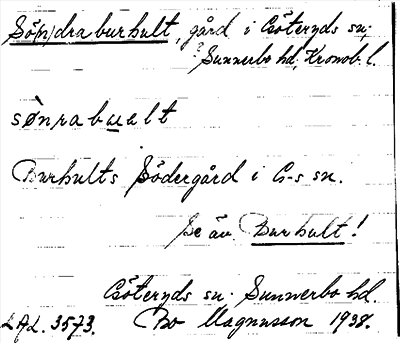 Sö(n)dra burhult, gård i Göteryds sn,
? Sunnerbo hd, Kronob. l.
sònrabualt
Burhults Södergård i G-s sn.
Se äv. Burhult!
Göteryds sn. Sunnerbo hd.
LAL. 3573. Bo Magnusson 1938.